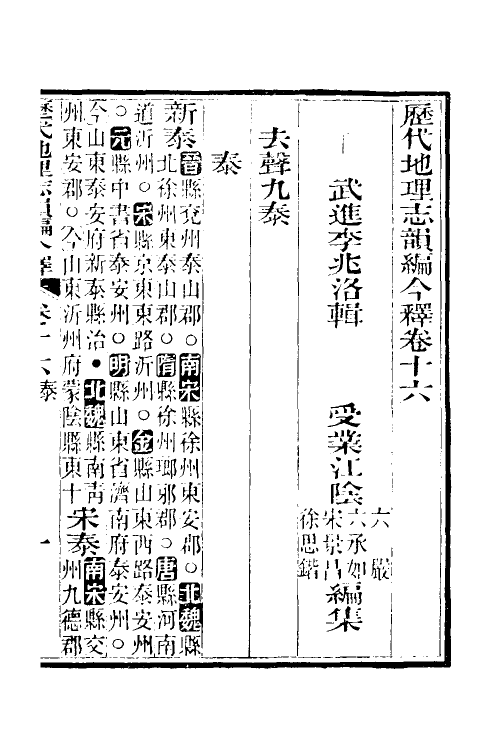 歷代地理志韻編今釋卷十六
武進李兆洛輯　受業江陰
六嚴
六承如
宋景昌
徐思鍇
編集
去聲九泰
泰
新泰
晉縣兗州泰山郡○南宋縣徐州東安郡○北魏縣
北徐州東泰山郡○隋縣徐州瑯邪郡○唐縣河南
道沂州○宋縣京東東路沂州○金縣山東西路泰安州
○元縣中書省泰安州○明縣山東省濟南府泰安州○
今山東泰安府新泰縣治●北魏縣南青
州東安郡○今山東沂州府蒙陰縣東十
宋泰
南宋縣交
州九德郡
歷代地理志韻編今釋　卷十六泰　一